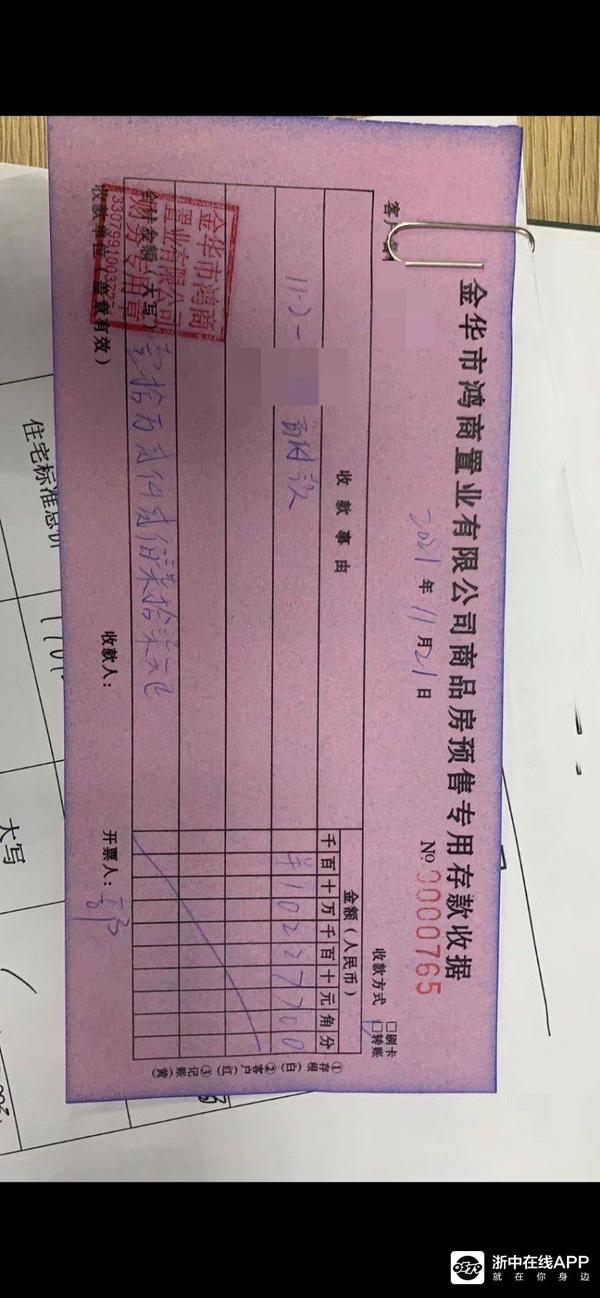 金华市鸿商置业有限公司商品房预售专用存款收据
2021年11月21日
№ 0000765
客户名称
收款方式 □刷卡
□转账
收款事由
金额（人民币）
千百十万千百十元角分
11-2-
首付款
¥10227700
合计金额（大写）
壹拾万贰仟贰佰柒拾柒元
收款单位（盖章有效）
收款人：
开票人：
金华市鸿商
置业有限公司
财务专用章
①存根（白） ②客户（红） ③记账（黄）
住宅标准总价
大写
浙中在线APP
就在你身边